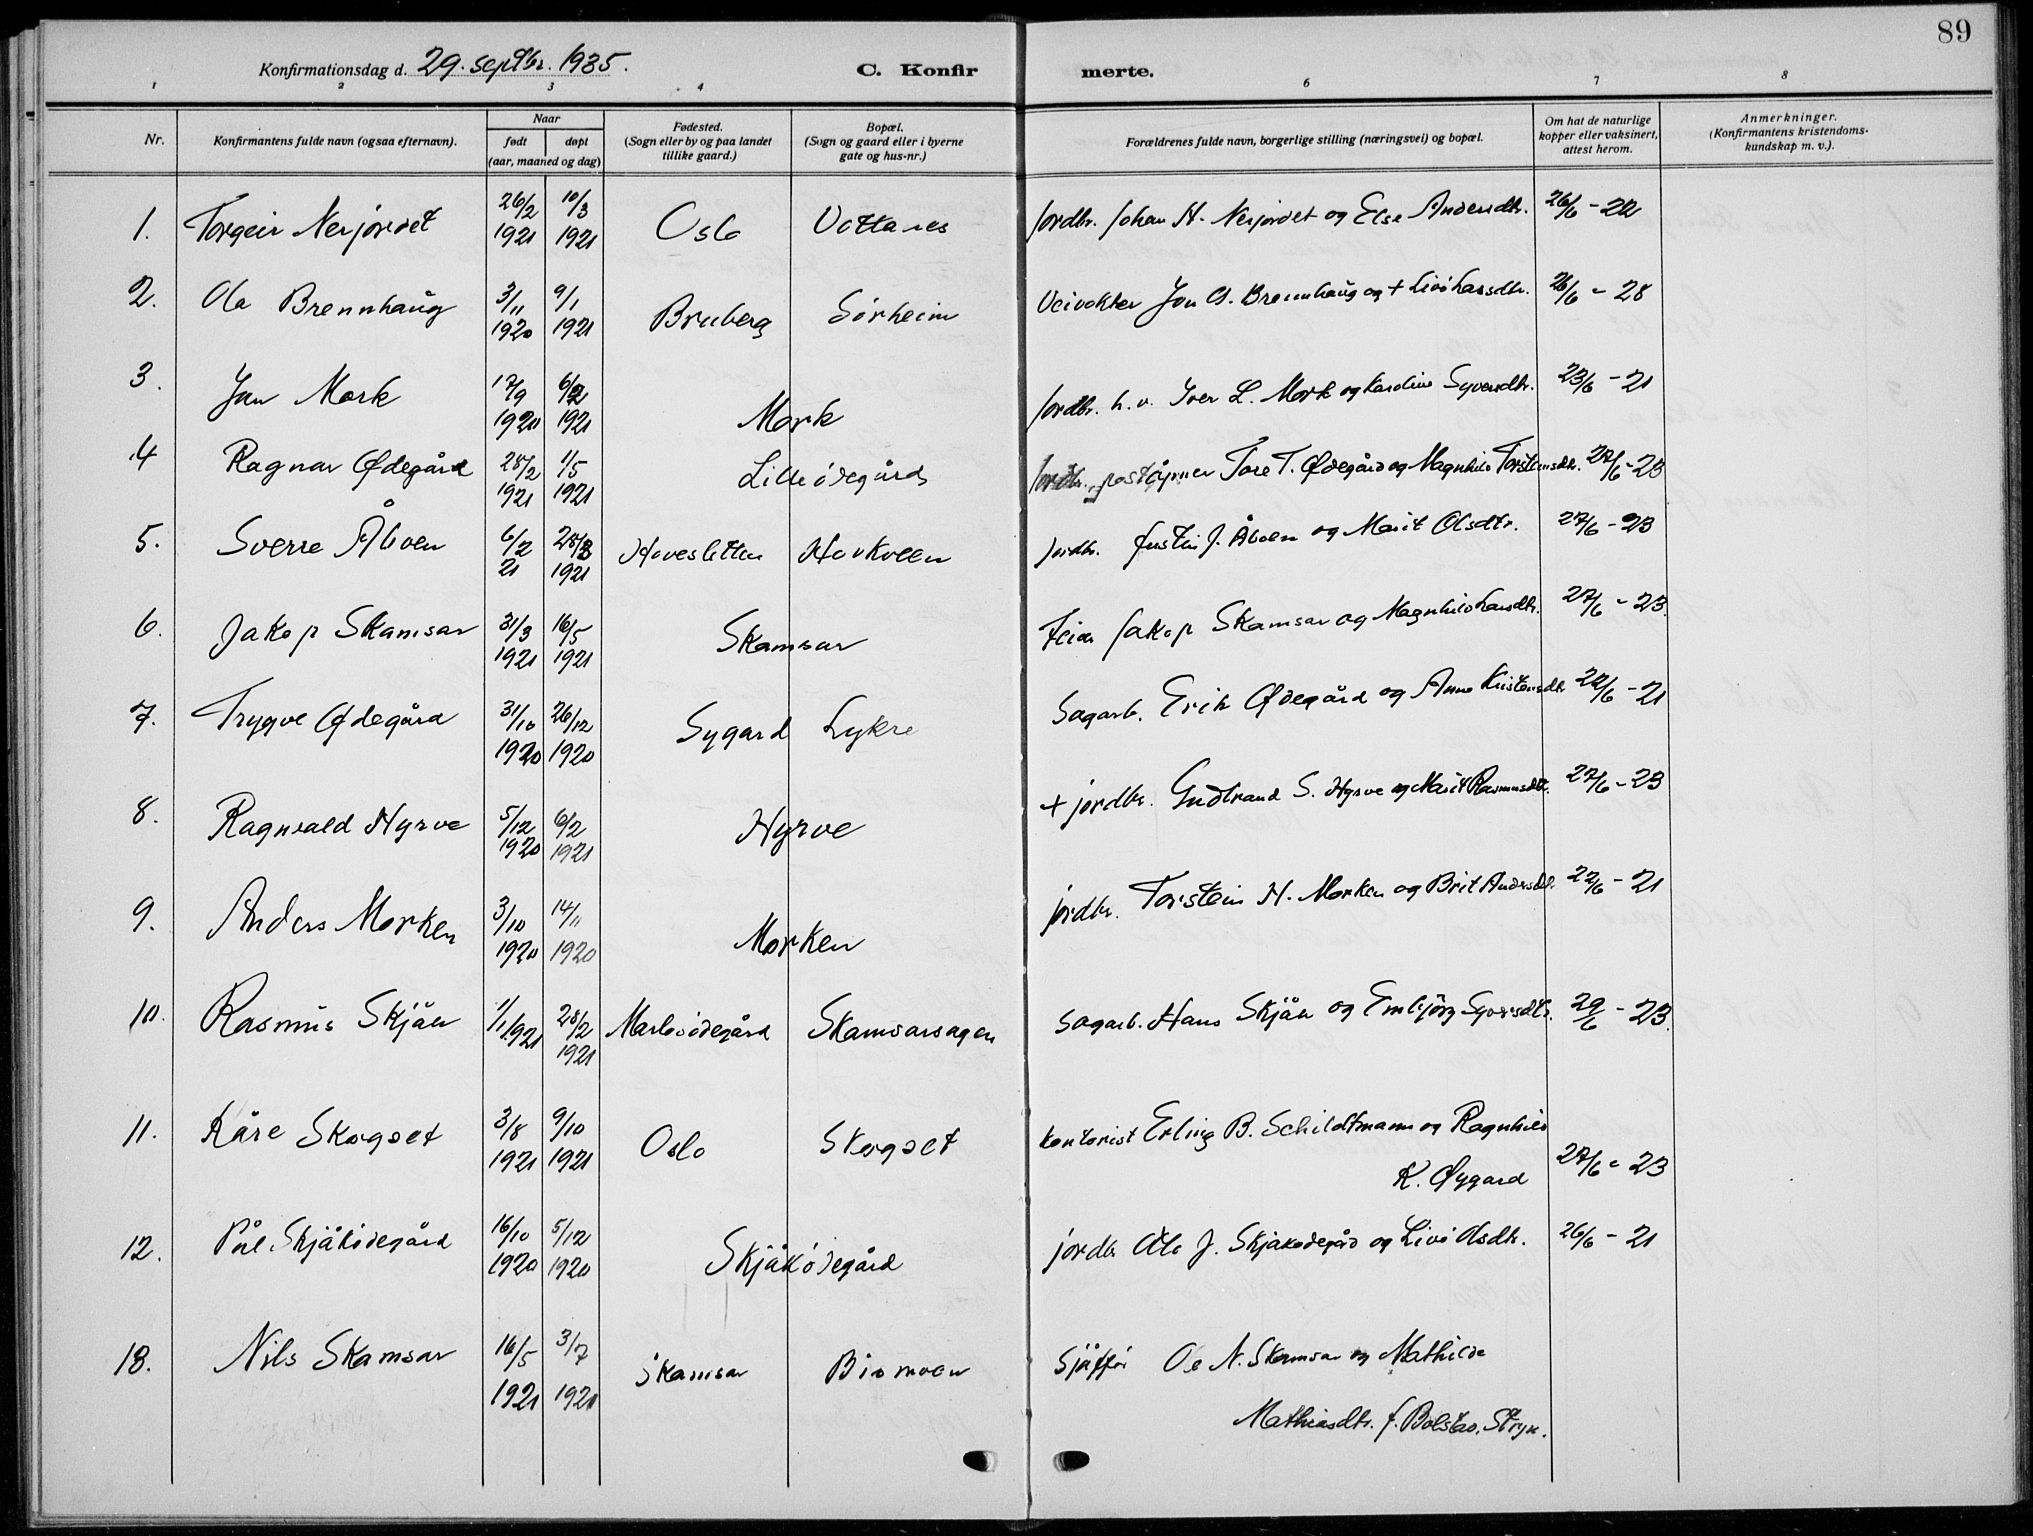 89
Konfirmationsdag d. 29. septbr. 1935.
C. Konfir merte.
1 2 3 4 6 7 8
Nr.
Konfirmantens fulde navn (ogsaa efternavn).
Naar
født døpt
(aar, maaned og dag)
Fødested.
(Sogn eller by og paa landet
tillike gaard.)
Bopæl.
(Sogn og gaard eller i byerne
gate og hus-nr.)
Forældrenes fulde navn, borgerlige stilling (næringsvei) og bopæl.
Om hat de naturlige
kopper eller vaksinert,
attest herom.
Anmerkninger.
(Konfirmantens kristendoms-
kundskap m. v.).
1. Torgeir Nerjordet 26/2 1921 10/3 1921 Oslo Jordbr. Johan H. Nerjordet og Else Andersdtr. 26/6 - 22
2. Ola Brennhaug 3/11 1920 9/1 1921 Bruberg Sørheim Veivokter Jon O. Brennhaug og + Livi Larsdtr. 26/6 - 28
3. Jan Mork 17/9 1920 6/2 1921 Mork Jordbr. h. v. Iver L. Mork og Karoline Syversdtr. 23/6 - 21
4 Ragnar Ødegård 28/2 1921 1/5 1921 Lilleødegård Jordbr., poståpner Tore T. Ødegård og Magnhild Torsteinsdtr. 27/6 - 23
5. Sverre Åboen 6/2 21 28/3 1921 Hovesletten Hovkveen Jordbr. Jøstin J. Åboen og Marit Olsdtr. 27/6 - 23
6. Jakop Skamsar 31/3 1921 16/5 1921 Skamsar Feier Jakop Skamsar og Magnhild Larsdtr. 27/6 - 23.
7. Trygve Ødegård 31/10 1920 26/12 1920 Sygard Lykre Sagarb. Erik Ødegård og Anne Kristensdtr 22/6 - 21
8. Ragnvald Hyrve 5/12 1920 6/2 1921 Hyrve + jordbr. Gudbrand S. Hyrve og Marit Rasmusdtr. 27/6 - 23
9. Anders Morken 3/10 1920 14/11 1920 Morken jordbr. Torstein H. Morken og Brit Andersdtr. 22/6 - 21
10. Rasmus Skjåk 1/1 1921 28/2 1921 Marloødegård Skamsarsagen Sagarb. Hans Skjåk og Embjørg Syversdtr. 29/6 - 23.
11. Kåre Skogset 3/8 1921 9/10 1921 Oslo Skogset kontorist Erling B. Schildtmann og Ragnhild
K. Øygard 27/6 - 23
12. Pål Skjåkødegård 16/10 1920 5/12 1920 Skjåkødegård jordbr Ola J. Skjåkødegård og Livi Olsdtr. 26/6 - 21
13. Nils Skamsar 16/5 1921 3/7 1921 Skamsar Bismoen Sjåffør Ole N. Skamsar og Mathilde
Mathiasdtr. f. Bolstad, Stryn.